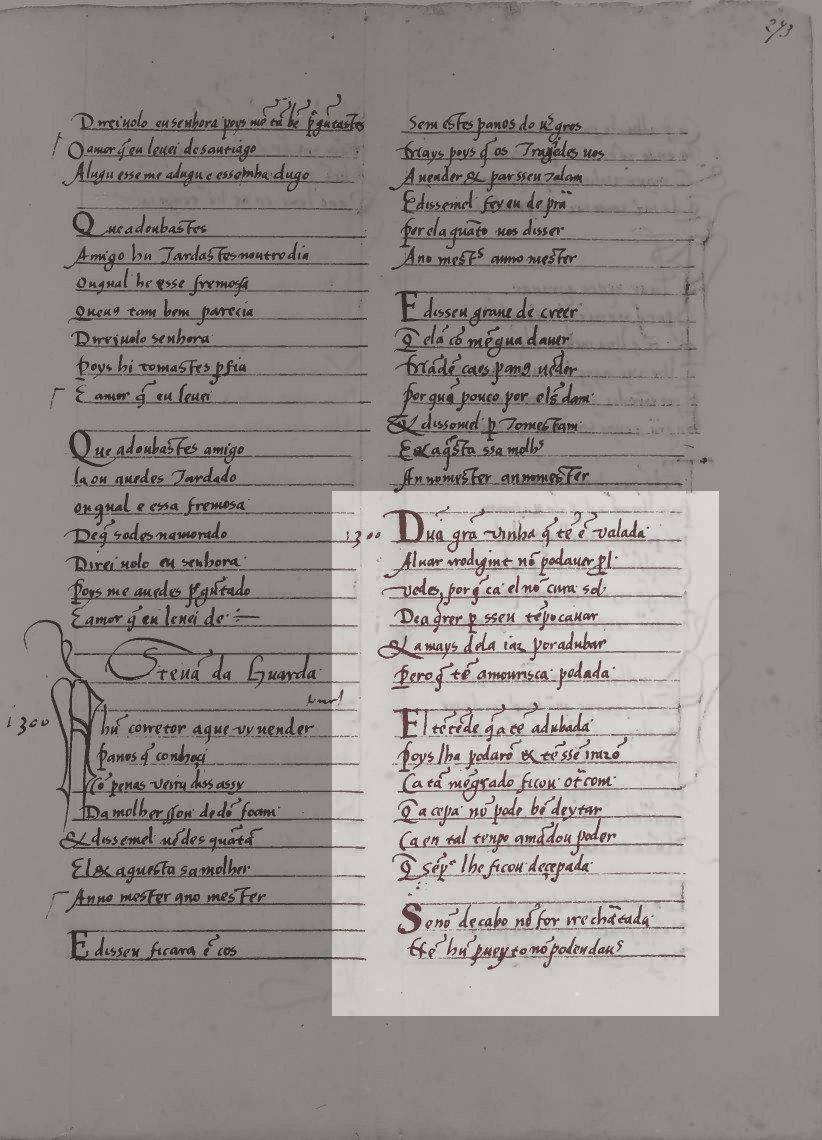 273
Direiuolo eu senhora poys me tã bẽ p̃gũtastes
O amor q̃ eu leuei de santiago
A lugu esse me adugu e essomha dugo
Que adoubastes
Amigo hu Tardastes noutro dia
ou qual he esse fremosa
Que uꝯ tam bem parecia
Direiuolo senhora
Poys hi tomastes pfia
E amor q̃ eu leuei
Que adoubastes amigo
la ou auedes Tardado
ou qual e essa fremosa
De q̃ sodes namorado
Direi uolo eu senhora
Poys me auedes p̃gũtado
E amor q̃ eu leuei de
Steuã da Guarda
1300
hũ corretor a que vy uender
panos q̃ conhoçi
Cõ penas veira diss assy
Da molher ſſon de dõ foam
& dissemel uẽdes quãta
El & aquesta sa molher
Anno mester ano mester
E disseu ficara ẽ cos
Sem estes panos do
A uender & par sseu Talam
E dissemel sey eu de prã
per ela quãto uos disser
A no mest̃s anno mester
E disseu graue de creer
Q̃ ela cõ mẽgua dauer
por quã pouco por el dam
& dissomel p Tomestam
E & aq̃sta ssa molh̃s
An nomester an nomester
1300
Dũa grã vinha q̃ tẽ ẽ valada
Aluar rrodigiut nõ pod auer pl
vedes, por q̃ ca el nõ cura sol
De a q̃rer p sseu tẽpo cauar
& a mays dela iaz por adubar
Pero q̃ tẽ amourisca podada
El tẽ tẽde q̃ a tẽ adubada
Poys lha podarõ & tẽ ssẽ irazõ
Ca tã mẽgũado ficou ot̃ com
Q̃ a cepa nõ pode bẽ deytar
Ca en tal tenpo a mãdou poder
Q̃ sẽp̃ lhe ficou deçepada
Se nõ de cabo nõ for rrechãtada
tẽ hũ prueyto nõ pod en daũs